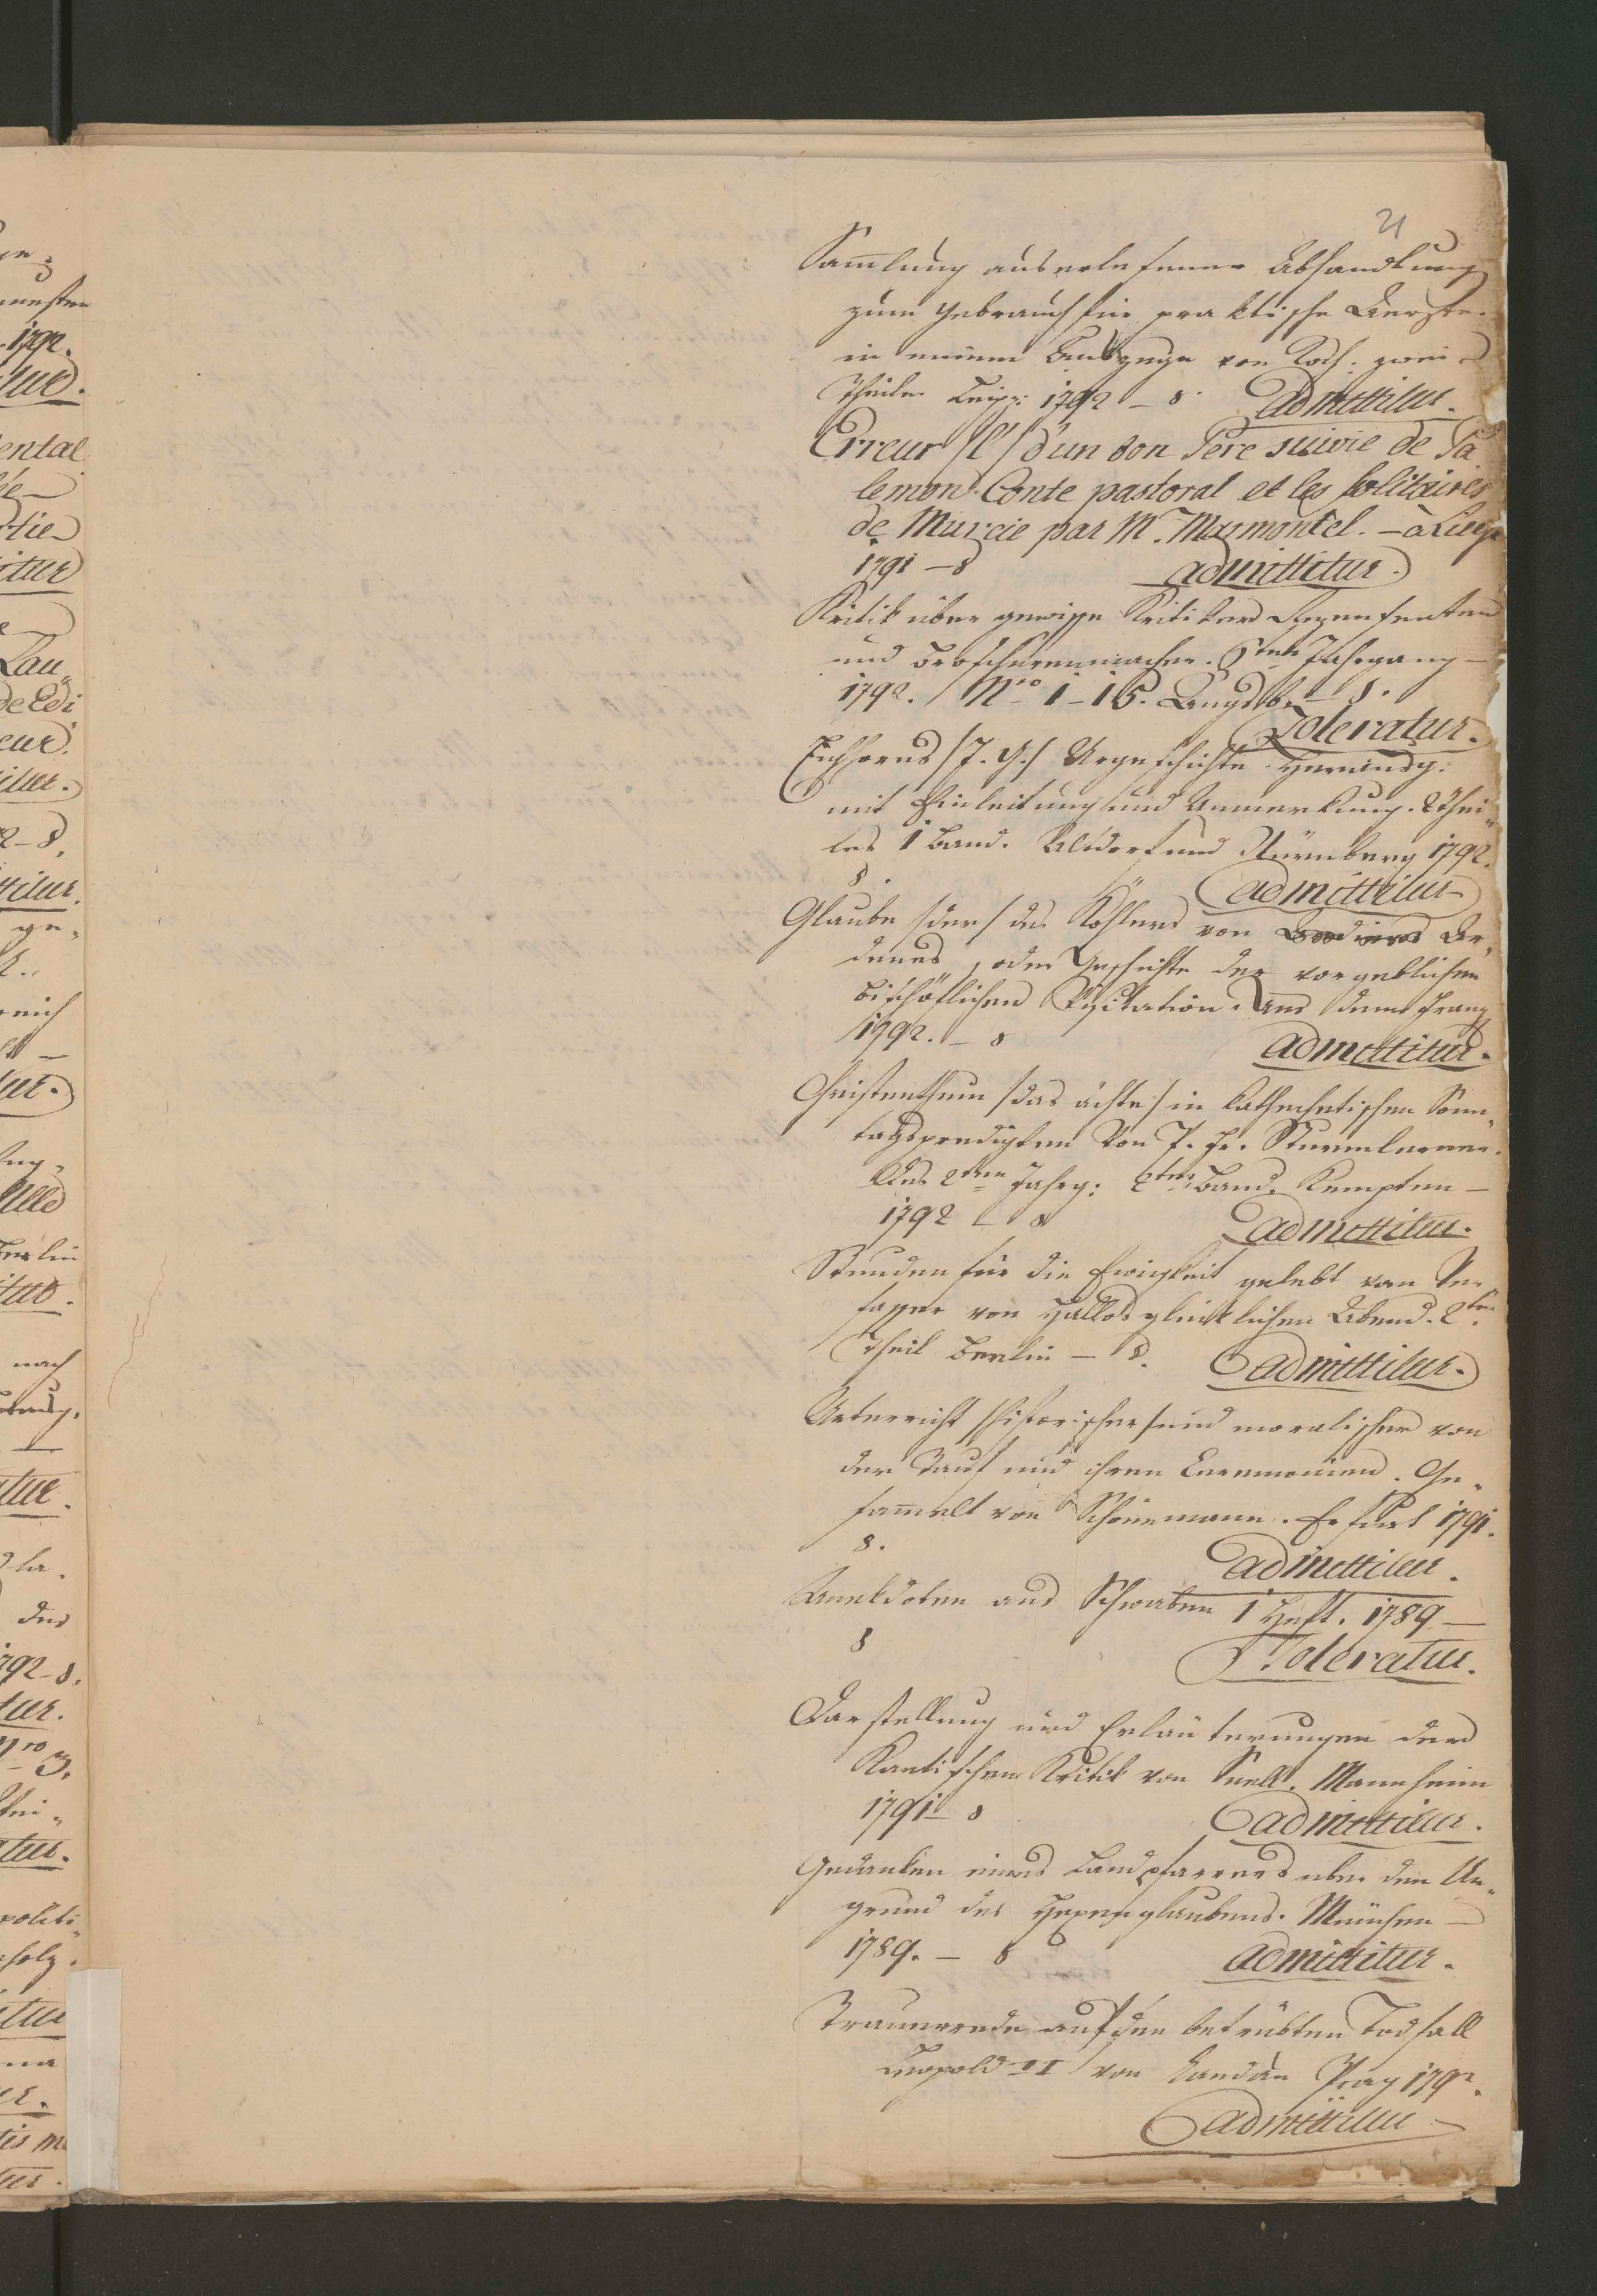 21
Sam̄lung auserlesener Abhandlung
zum Gebrauch für praktische Aerzte.
in einem Auszuge von Koch. zwei
Theile. Leipz: 1792 – 8. admittitur.
Erreur /l'/ d'un bon Pere suivie de Pa
lemon. Conte pastoral et les solitaires
de Murcie par Mr. Marmontel. – à Liege
1791 – 8 admittitur.
Kritik über gewisse Kritiker Rezensenten
und Broschürenmacher. Jahrgang –
1792. Nro 1–15. Augsb. – 8.
Toleratur.
Eichhorns /J. G./ Urgeschichte herausg.
mit Einleitung und Anmerkung. 2 Thei„
les 1 Band. Altdorf und Nürnberg 1792.
8. admittitur
Glaube /der/ des Köhlers von Ar„
dennes, oder Geschichte der vorgeblichen
bischöflichen Visitation. Aus dem Franz
1792. – 8 admittitur.
Christenthum /das ächte/ in kathechetischen Sonn„
tagspredigten von P. Fr. Sturmlerner.
Des 2ten Jahrg: 2ter Band. Kempten –
1792 – 8 admittitur.
Stunden für die Ewigkeit gelebt von Ver„
fasser von Hallos glücklichen Abend. 2ter
Theil Berlin – 8. admittitur.
Unterricht /historischer/ und moralischer von
der Tauf und ihren Ceremonien. Ge„
sam̄elt von Schönemann. Erfurt 1791.
8. admittitur.
Anekdoten aus Schwaben 1 Heft. 1789 –
8 Toleratur.
Darstellung und Erläuterungen der
Kantischen Kritik von Snell. Mannheim
1791 – 8 admittitur.
Gedanken eines Landpfarrers über den Un„
grund des Hexenglaubens. München –
1789. – 8 admittitur.
Trauerrede auf den betrübten Todfall
Leopold II von Prag 1792.
admittitur